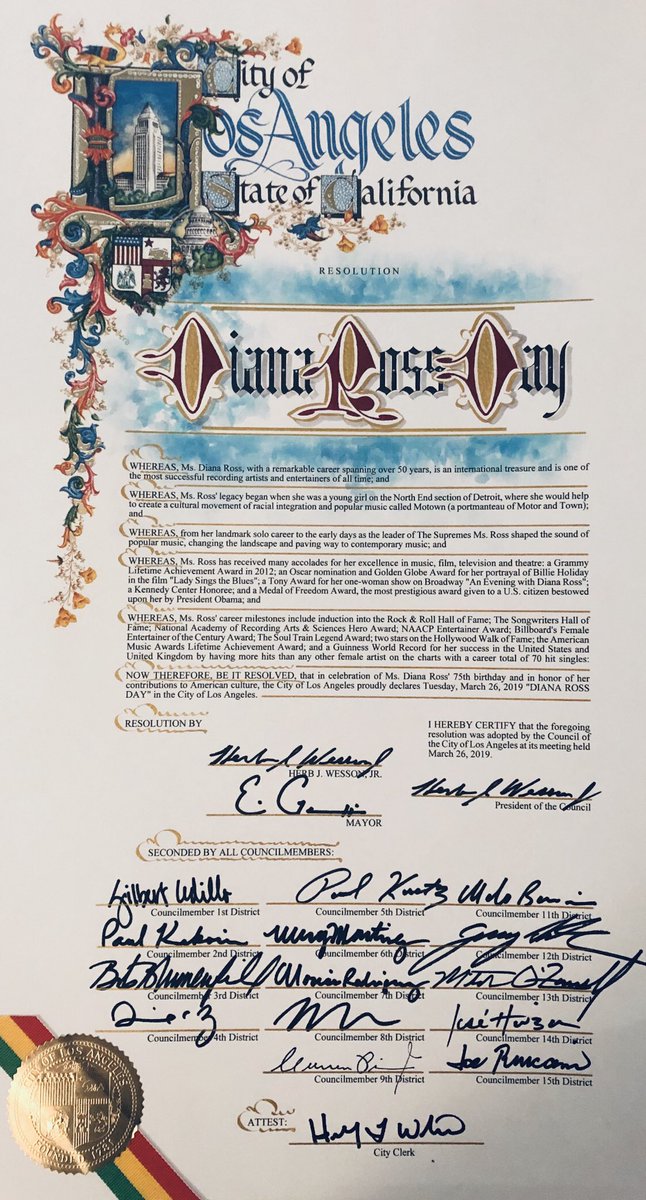 City of
Los Angeles
State of California
RESOLUTION
Diana Ross Day
WHEREAS, Ms. Diana Ross, with a remarkable career spanning over 50 years, is an international treasure and is one of
the most successful recording artists and entertainers of all time; and
WHEREAS, Ms. Ross' legacy began when she was a young girl on the North End section of Detroit, where she would help
to create a cultural movement of racial integration and popular music called Motown (a portmanteau of Motor and Town);
and
WHEREAS, from her landmark solo career to the early days as the leader of The Supremes Ms. Ross shaped the sound of
popular music, changing the landscape and paving way to contemporary music; and
WHEREAS, Ms. Ross has received many accolades for her excellence in music, film, television and theatre: a Grammy
Lifetime Achievement Award in 2012; an Oscar nomination and Golden Globe Award for her portrayal of Billie Holiday
in the film "Lady Sings the Blues"; a Tony Award for her one-woman show on Broadway "An Evening with Diana Ross";
a Kennedy Center Honoree; and a Medal of Freedom Award, the most prestigious award given to a U.S. citizen bestowed
upon her by President Obama; and
WHEREAS, Ms. Ross' career milestones include induction into the Rock & Roll Hall of Fame; The Songwriters Hall of
Fame; National Academy of Recording Arts & Sciences Hero Award; NAACP Entertainer Award; Billboard's Female
Entertainer of the Century Award; The Soul Train Legend Award; two stars on the Hollywood Walk of Fame; the American
Music Awards Lifetime Achievement Award; and a Guinness World Record for her success in the United States and
United Kingdom by having more hits than any other female artist on the charts with a career total of 70 hit singles:
NOW THEREFORE, BE IT RESOLVED, that in celebration of Ms. Diana Ross' 75th birthday and in honor of her
contributions to American culture, the City of Los Angeles proudly declares Tuesday, March 26, 2019 "DIANA ROSS
DAY" in the City of Los Angeles.
RESOLUTION BY
I HEREBY CERTIFY that the foregoing
resolution was adopted by the Council of
the City of Los Angeles at its meeting held
March 26, 2019.
Herb J. Wesson Jr
HERB J. WESSON, JR.
Herb J. Wesson Jr
President of the Council
MAYOR
SECONDED BY ALL COUNCILMEMBERS:
Councilmember 1st District
Councilmember 5th District
Councilmember 11th District
Councilmember 2nd District
Councilmember 6th District
Councilmember 12th District
Councilmember 3rd District
Councilmember 7th District
Councilmember 13th District
Councilmember 4th District
Councilmember 8th District
Councilmember 14th District
Councilmember 9th District
Councilmember 15th District
ATTEST:
City Clerk
LOS ANGELES
FOUNDED 1781